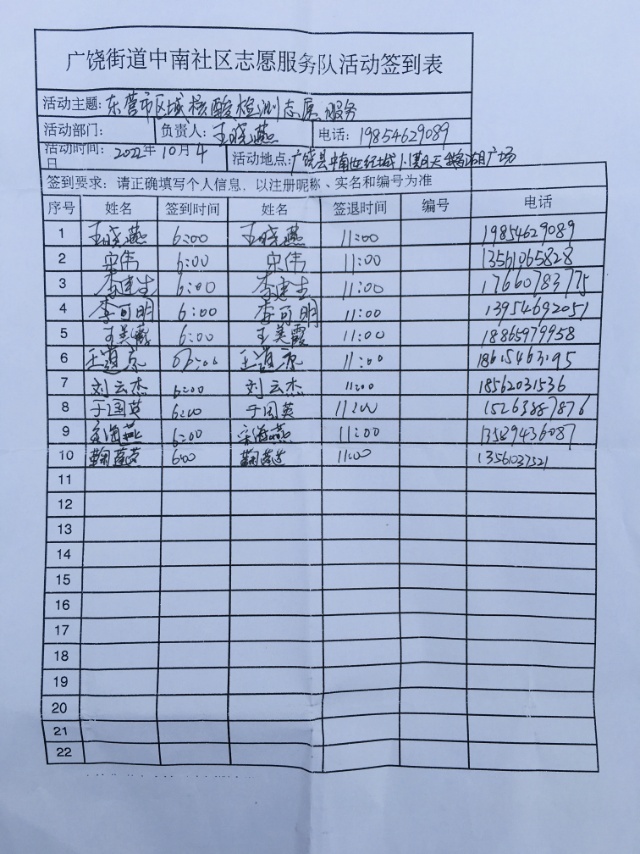 广饶街道中南社区志愿服务队活动签到表
活动主题: 东营市区域核酸检测志愿服务
活动部门: 负责人: 王晓燕 电话: 19854629089
活动时间: 2022年10月4日 活动地点: 广饶县中南世纪城1.1期天鹅湖广场
签到要求: 请正确填写个人信息,以注册昵称、实名和编号为准
序号 姓名 签到时间 姓名 签退时间 编号 电话
1 王晓燕 6:00 王晓燕 11:00 19854629089
2 宋伟 6:00 宋伟 11:00 13561065828
3 李建生 6:00 李建生 11:00 17660783775
4 李可明 6:00 李可明 11:00 13954692051
5 王美霞 6:00 王美霞 11:00 18865979958
6 王道 6:00 王道 11:00
7 刘云杰 6:00 刘云杰 11:00 18562031536
8 于国英 6:00 于国英 11:00 15263887876
9 宋海燕 6:00 宋海燕 11:00 13589436087
10 6:00 11:00 1356037521
11
12
13
14
15
16
17
18
19
20
21
22